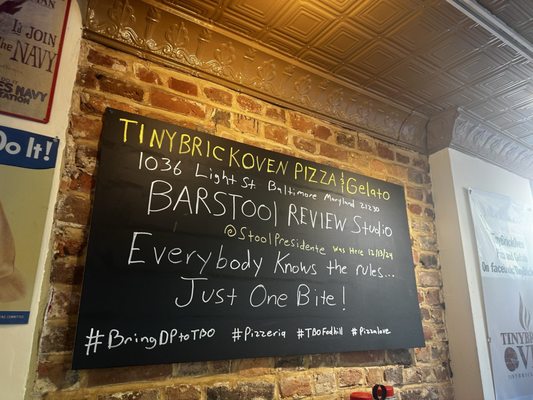 I
the NAVY
Do It!
TINYBRICKOVEN PIZZA & Gelato
1036 Light St Baltimore Maryland 21230
BARSTOOL REVIEW STUDIO
@StoolPresidente was Here 12/13/24
Everybody Knows the rules...
Just One Bite!
#BringDPtoTBO #Pizzeria #TBOFedhill #Pizzalove
TINY